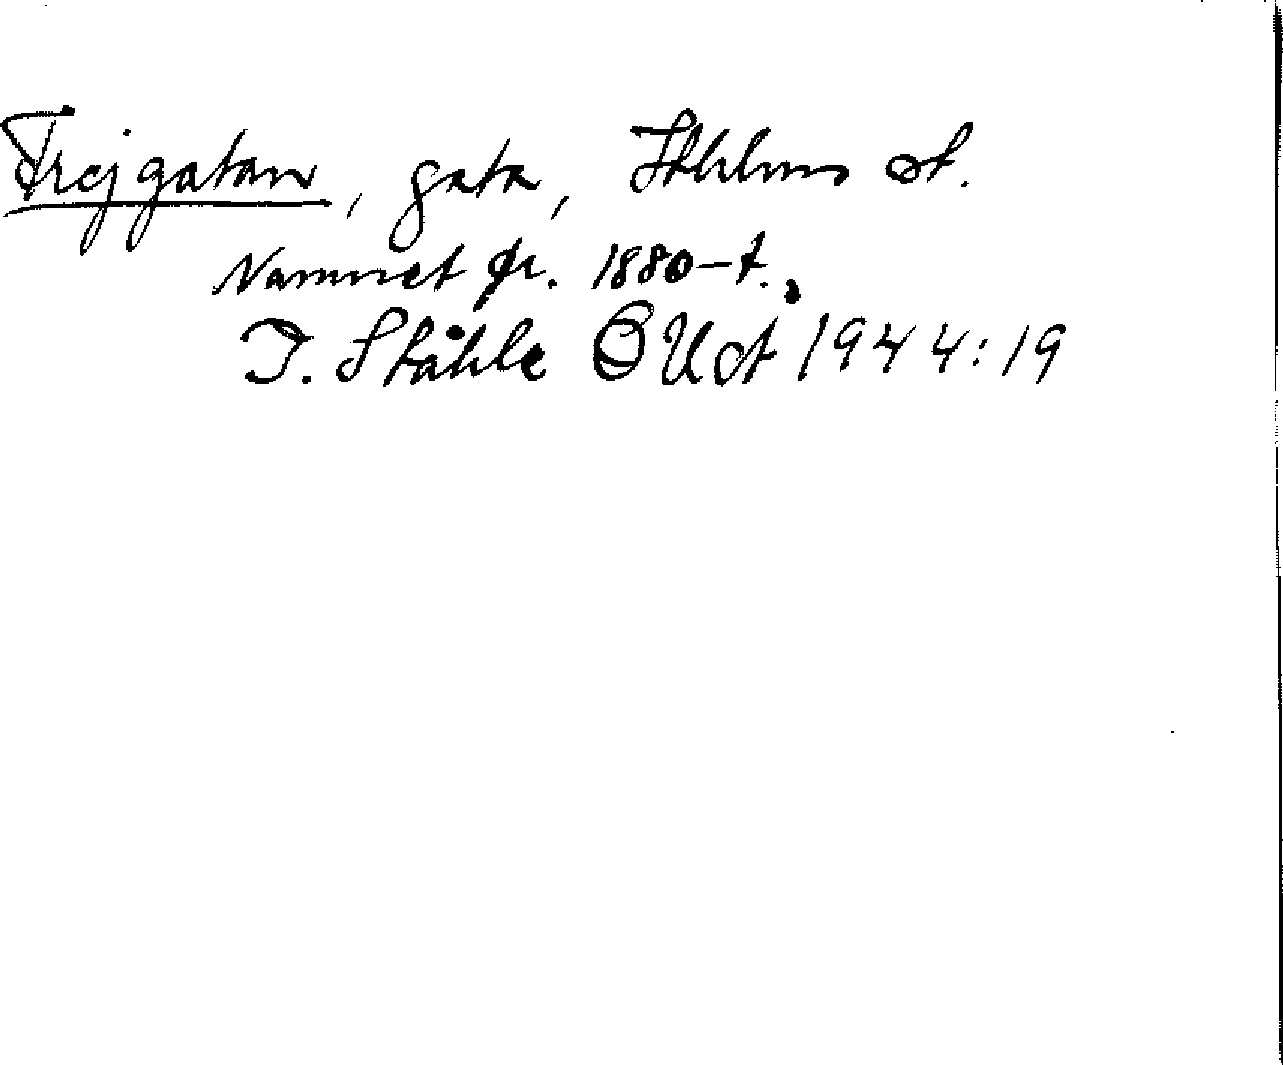 Frejgatan, gata, Sthlms st.
Namnet fr. 1880-t.
I. Ståhle 1944:19